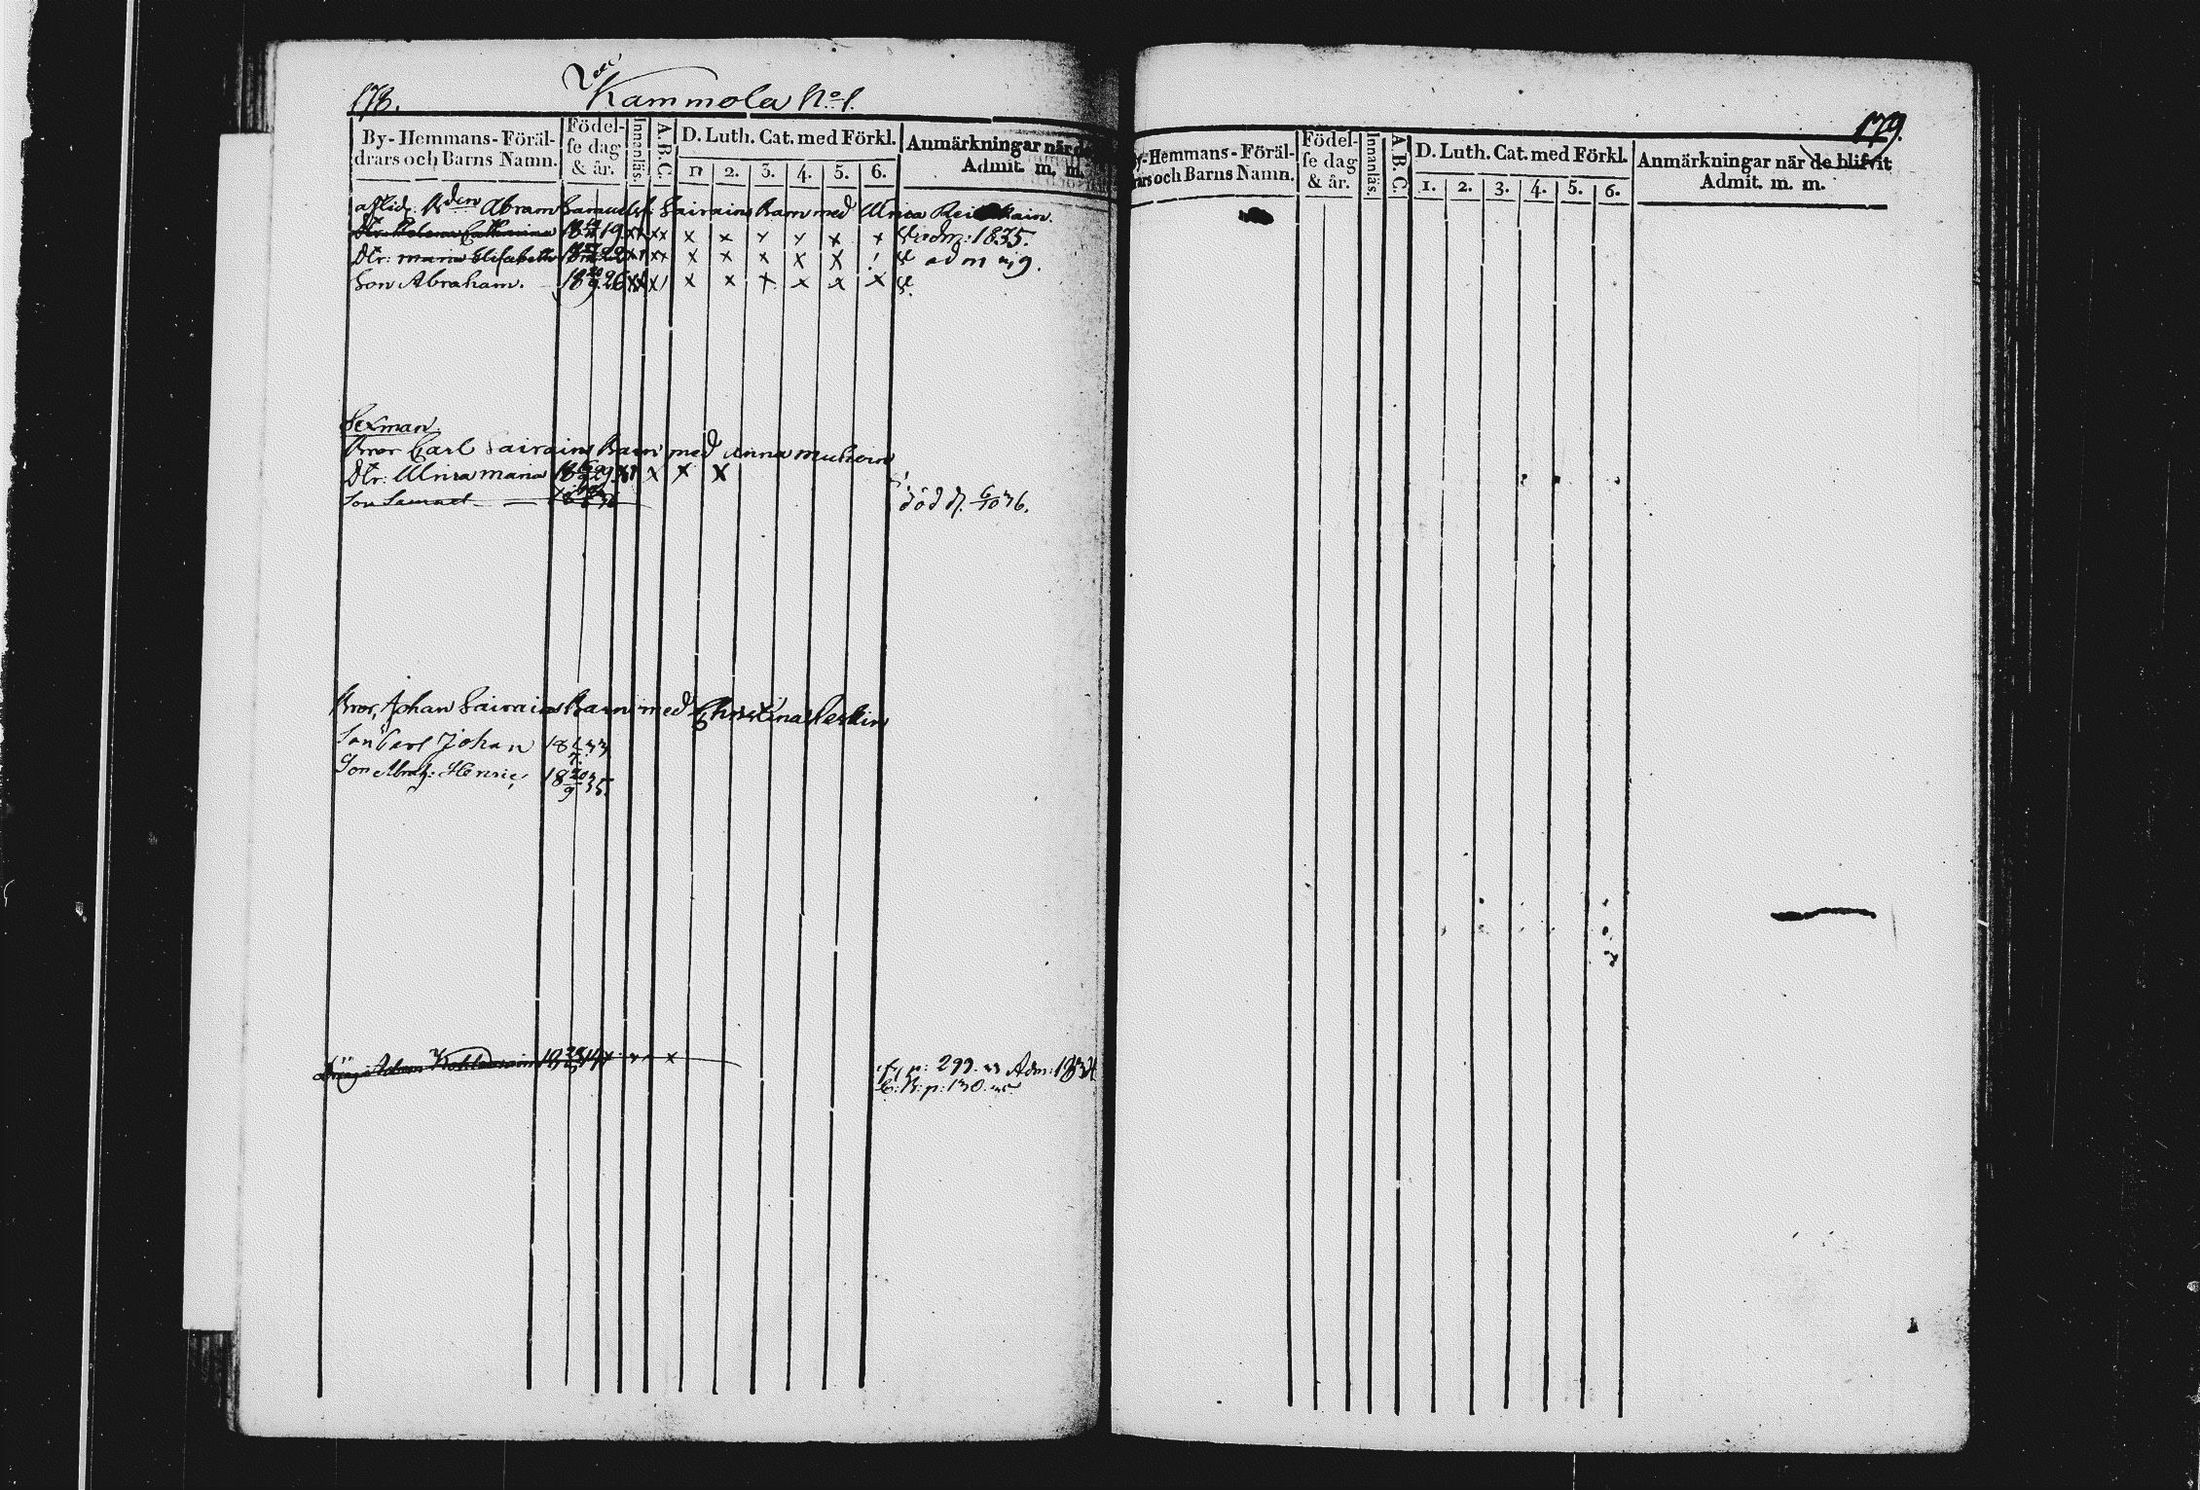 178.
Kammola No 1.
By- Hemmans- Föräl-
drars och Barns Namn.
Födel-
se dag
& år.
Innanläs.
A.B.C.
D. Luth. Cat. med Förkl.
1. 2. 3. 4. 5. 6.
Anmärkningar när de
Admit. m. m.
aflid. Bden Abram Samuelsf: Sairains Barn med Ulrica
Dtr Helena Catharina 19 x x x x x x adm: 1835.
Dtr: Maria Elisabeth 22 x x x x x adm
Son Abraham. 18 20/9 26 x x x x x x
Sexman
Bror Carl Sairains Barn med Anna Muhoin
Dtr: Ulrica Maria 29 x x x
Son Samuel död d. 6/10 36.
Bror, Johan Sairains Barn med Christina
Son Carl Johan 33
Son Abrah: Henric, 18 20/9 35.
Dräng Adam x
p: 299. Adm: 1834
C: B: p: 130.
179.
By- Hemmans- Föräl-
drars och Barns Namn.
Födel-
se dag
& år.
Innanläs.
A.B.C.
D. Luth. Cat. med Förkl.
1. 2. 3. 4. 5. 6.
Anmärkningar när de blifvit
Admit. m. m.